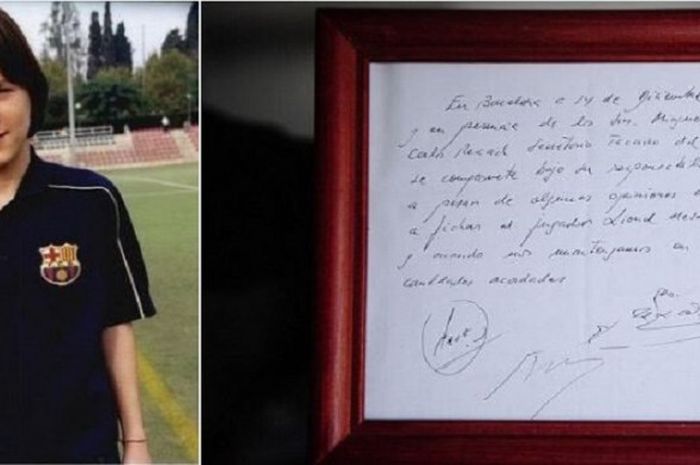 En Barcelona a 14 de Diciembre
y en presencia de los Srs. Minguella
Carles Rexach Secretario Tecnico del
se compromete bajo su responsabilidad
a pesar de algunas opiniones
a fichar al jugador Lionel Messi
y cuando nos mantengamos en
cantidades acordadas